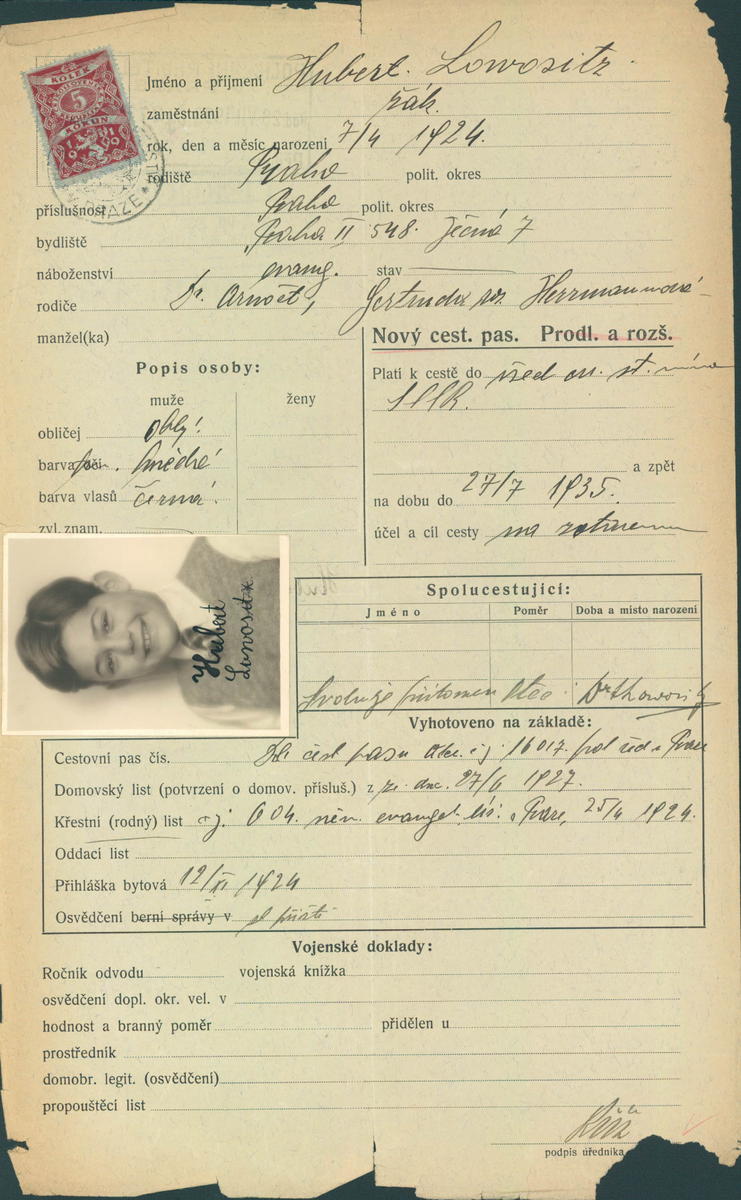 KOLEK
5
KORUN
1919
V PRAZE
Jméno a přijmení Hubert Lowositz
zaměstnání žák.
rok, den a měsíc narození 7/4 1924.
rodiště Praha polit. okres
příslušnost Praha polit. okres
bydliště Praha II 548. Ječná 7
náboženství evang. stav
rodiče Dr. Arnošt, Gertruda roz. Herrmannová
manžel(ka)
Nový cest. pas. Prodl. a rozš.
Popis osoby:
Platí k cestě do všed
muže ženy
obličej oblý.
barva snědá
a zpět
barva vlasů černá.
na dobu do 27/7 1935.
zvl. znam.
účel a cíl cesty na
Hubert
Lowositz
Spolucestující:
Jméno Poměr Doba a místo narození
přítomen otec Dr
Vyhotoveno na základě:
Cestovní pas čís. čest pasu 16017. pol řed v Praze
Domovský list (potvrzení o domov. přísluš.) z 27/6 1927.
Křestní (rodný) list čj. 604. něm. evangel. v Praze, 25/4 1924.
Oddací list
Přihláška bytová 12/XI 1924
Osvědčení berní správy v
Vojenské doklady:
Ročník odvodu vojenská knížka
osvědčení dopl. okr. vel. v
hodnost a branný poměr přidělen u
prostředník
domobr. legit. (osvědčení)
propouštěcí list
podpis úředníka